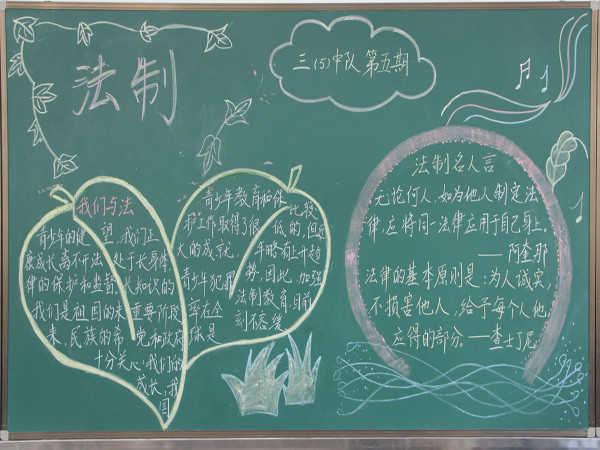 法制
三(5)中队 第五期
我们与法
青少年的健
康成长离不开法
律的保护和监督
我们是祖国的未
来,民族的希
望,我们正
处于长身体
长知识的
重要阶段
党和政府
十分关心我们的
成长,我
国
青少年教育和保
护工作取得了很
大的成就,
青少年犯罪
率在全
球是
比较
低的,但近
年略有上升趋
势。因此,加强
法制教育,目前
刻不容缓
法制名人言
无论何人,如为他人制定法
律,应将同一法律应用于自己身上。
——阿奎那
法律的基本原则是:为人诚实,
不损害他人,给予每个人他
应得的部分。——查士丁尼